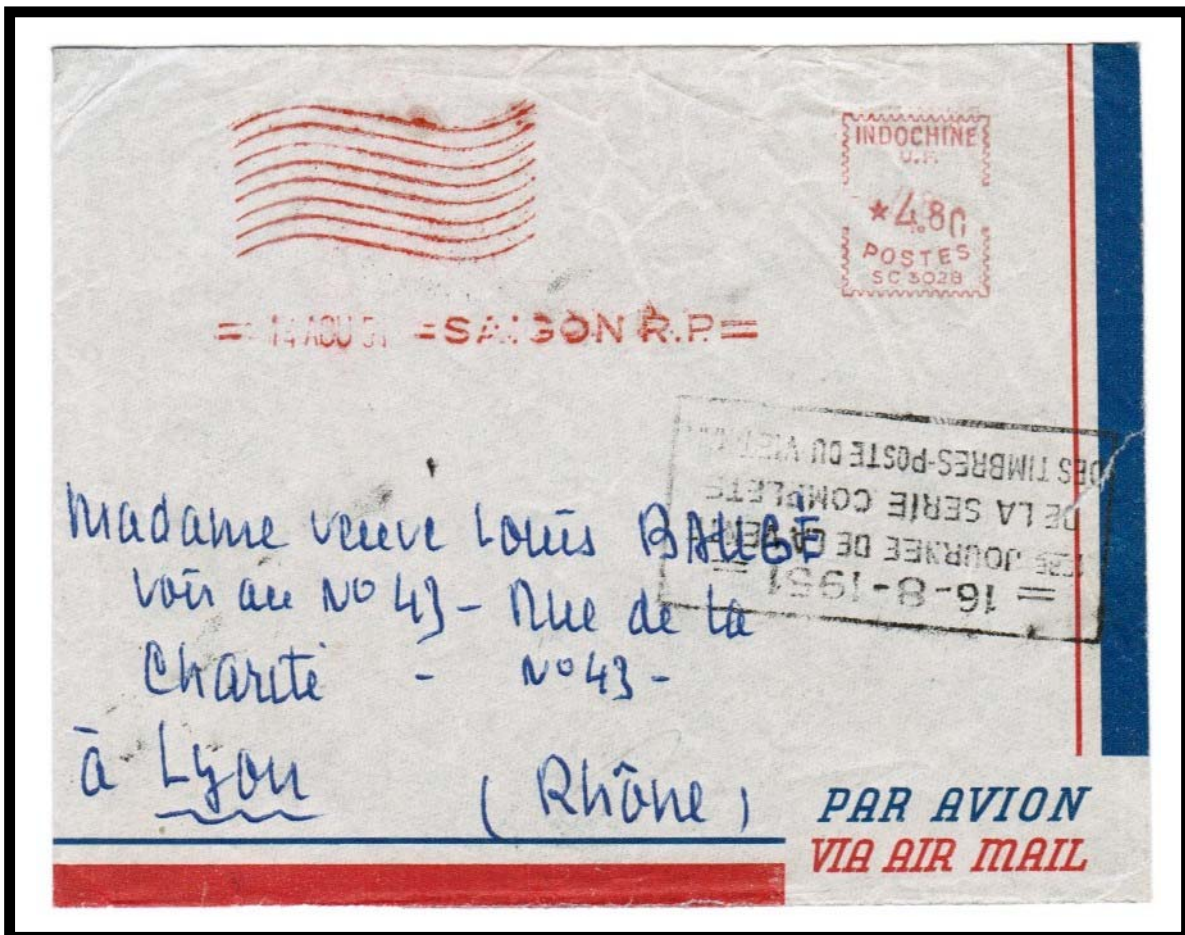 INDOCHINE
U.F.
★4.80
POSTES
SC 3028
= 14 AOU 51 =SAIGON R.P.=
= 16-8-1951 =
JOURNEE DE LA VENTE
DE LA SERIE COMPLETE
DES TIMBRES-POSTE DU
Madame veuve Louis BAUGÉ
voir au No 43 - Rue de la
Charité - No 43 -
à Lyon (Rhône)
PAR AVION
VIA AIR MAIL